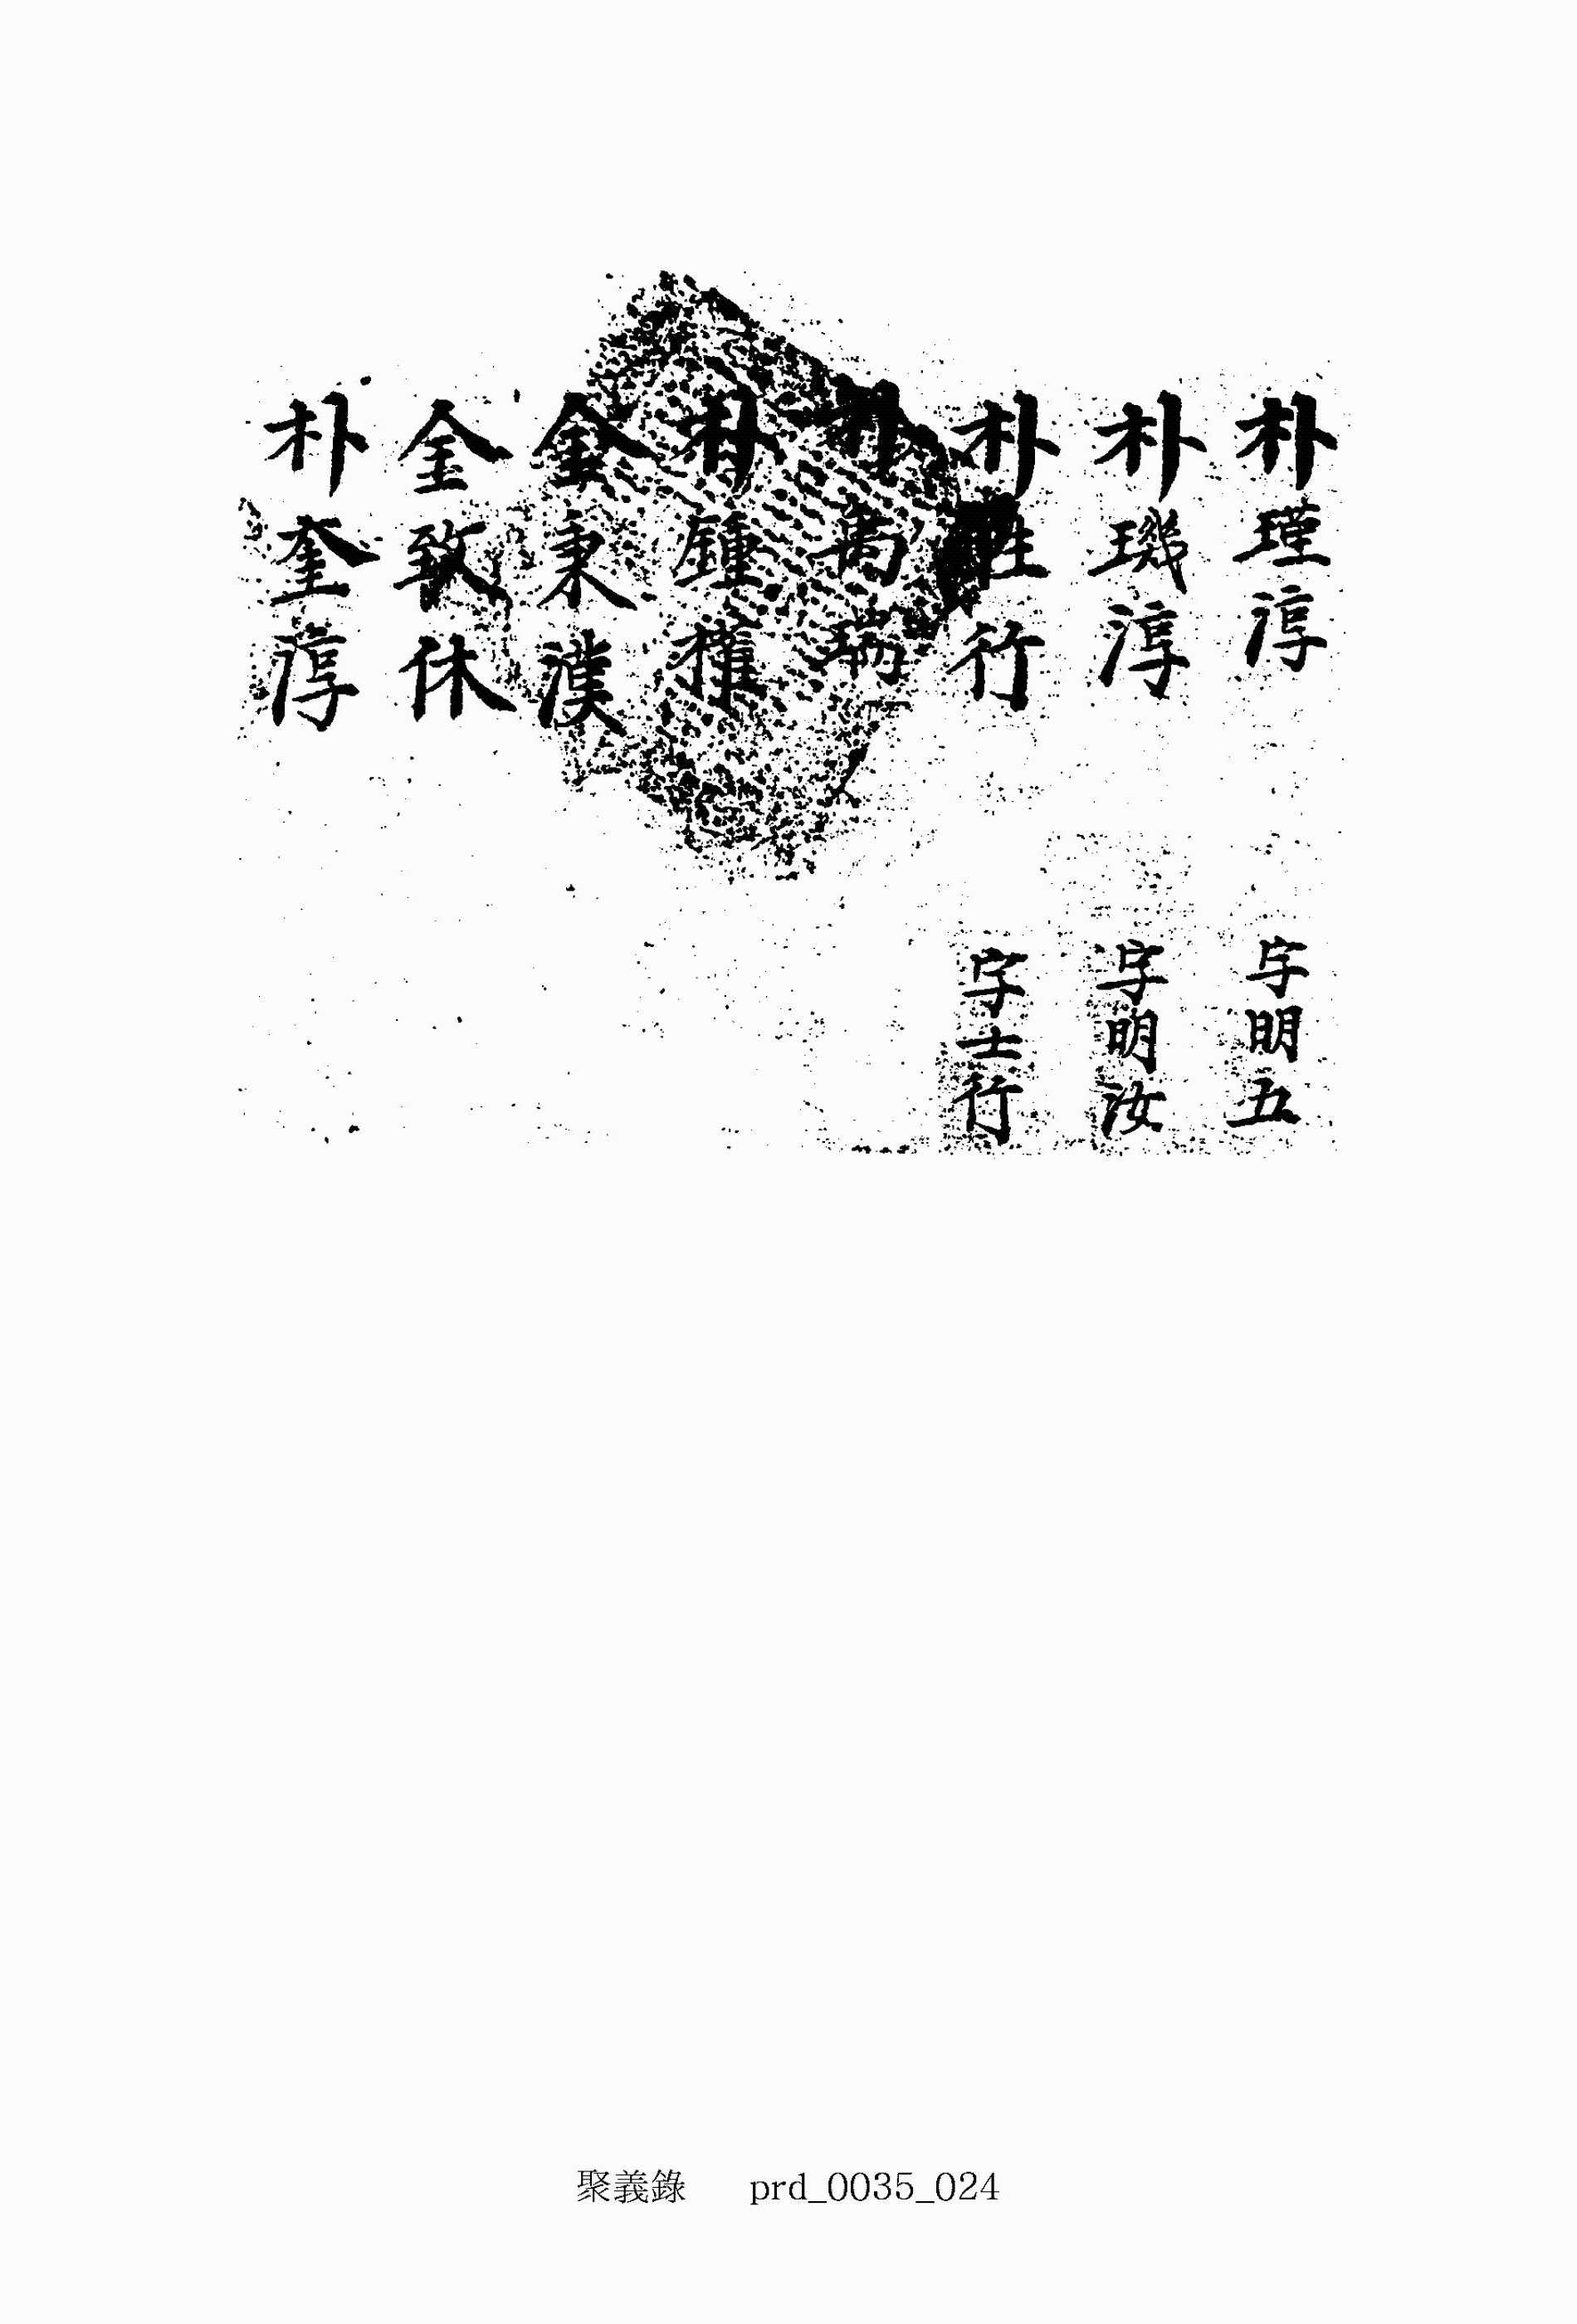 朴瑾淳 字明五
朴璣淳 字明汝
朴胜行 字士行
朴萬瑞
朴鍾權
金秉漢
金致休
朴奎淳
聚義錄 prd_0035_024